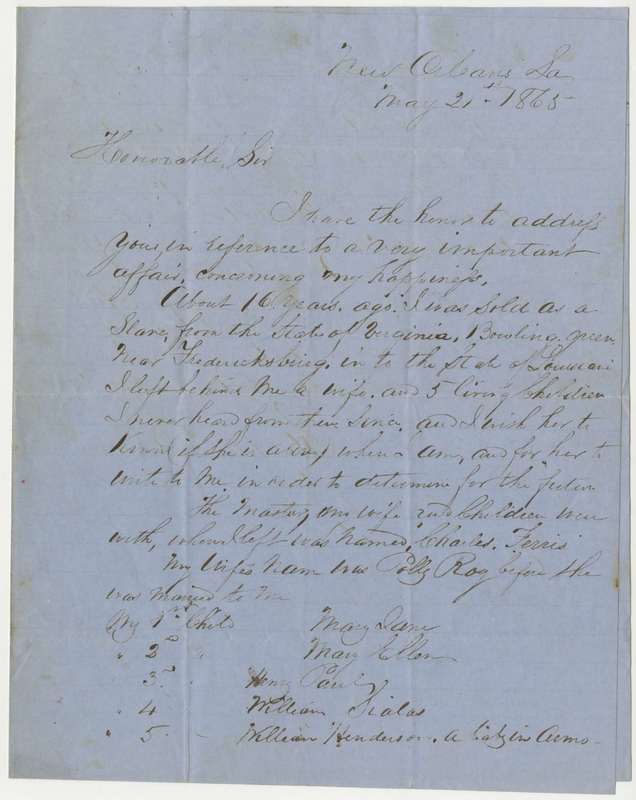 New Orleans La
May 21st 1865
Honorable, Sir
I have the honor to address
you, in reference to a very important
affair, concerning my happiness,
About 16 years, ago. I was Sold as a
Slave, from the State of Verginia, Bowling green
Near Fredericksburg, in to the State of
I left behind Me a wife, and 5 living Children
I never heard from them Since, and I wish her to
Know if She is alive, where I am, and for her to
write to Me, in order to determine for the
The Master, my wife and Children were
with, when I left was named, Charles. Ferris
My wife's Name was Polly Roy before She
was maried to Me
My 1st Child Mary Jane
" 2nd " Mary Ellen
" 3 " Henry Paul
" 4 William
" 5 - William Henderson. a baby in arms-